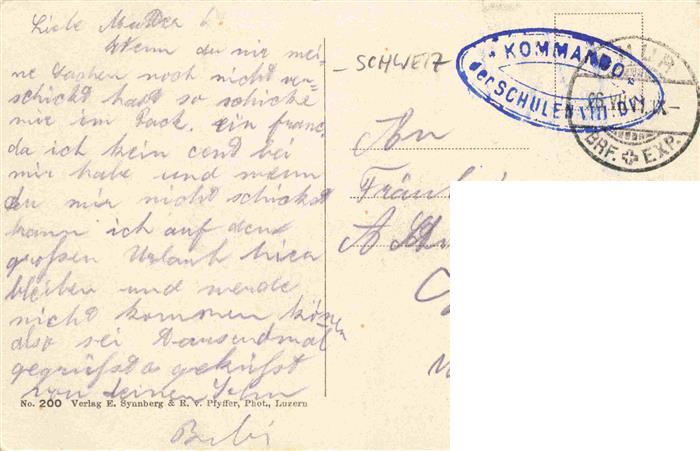 Liebe Mutter
Wenn du mir mei-
ne Sachen noch nicht ver-
schickt hast so schicke
mir im Pack. ein franc.
da ich kein cent bei
mir habe und wenn
du mir nicht schickst
kann ich auf den
grossen Urlaub hier
bleiben und werde
nicht kommen können
also sei Tausendmal
gegrüsst & geküsst
von deinen Sohn
Bubi
No. 200 Verlag E. Synnberg & R. v. Pfyffer, Phot., Luzern
– SCHWEIZ
KOMMANDO
der SCHULEN VIII. DIV.
BRF. EXP.
An
Fräul
A